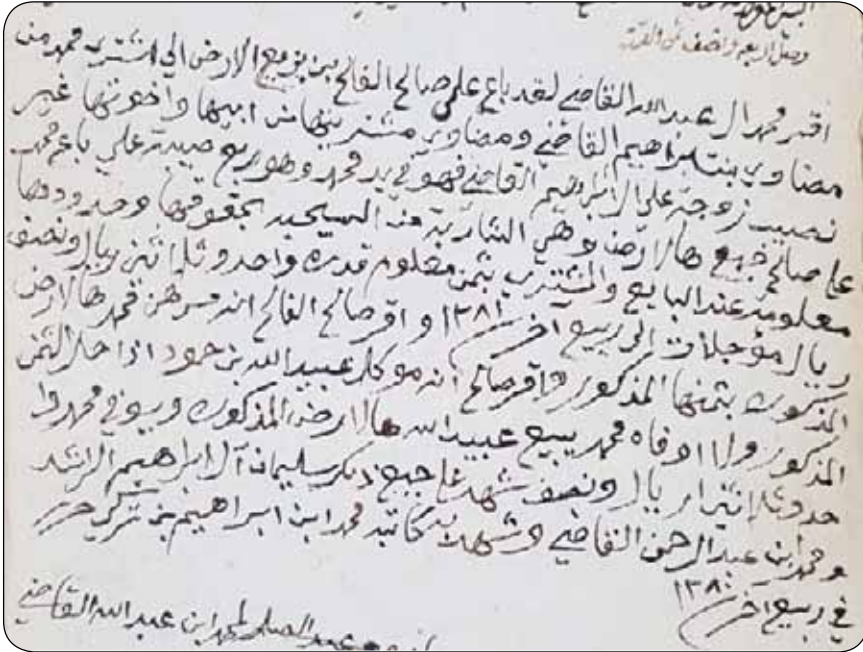 وصل اربعه وانصف من القرت
اقر محمد ال عبدالله القاضي لقد باع على صالح الفالح بن بزيع الارض الي اشترى محمد من
مضاوي بنت ابراهيم القاضي ومضاوي مشتريتها من ابيها واخوتها غير
نصيب زوجة علي ال ابراهيم القاضي فهو في يد محمد وهو ربع صيبة علي باع محمد
على صالح جميع هالارض وهي الشاربة من المسيحيه بحقوقها وحدودها
معلومه عند البايع والمشتري بثمن معلوم قدره واحد وثلاثين ريال ونصف
ريال مؤجلات الى ربيع اخر ١٢٨١ واقر صالح الفالح انه مرهن محمد هالارض
المذكوره بثمنها المذكور واقر صالح انه موكل عبيدالله بن حمود اذا حل الثمن
المذكور ولا اوفاه محمد يبيع عبيدالله هالارض المذكوره ويوفي محمد وا
حد وثلاثين ريال ونصف شهد على جميع ذلك سليمان آل ابراهيم الراشد
ومحمد ابن عبدالرحمن القاضي وشهد به كاتبه محمد ابن ابراهيم بن تركي حرر
في ربيع اخر ١٢٨٠
محمد ابن عبدالله القاضي